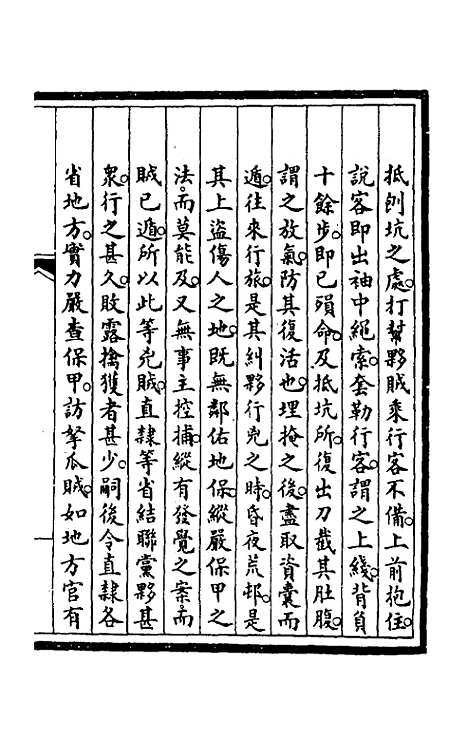 抵刨坑之處打幫夥賊乘行客不備上前抱住
說客即出袖中繩索套勒行客謂之上綫背負
十餘步即已殞命及抵坑所復出刀截其肚腹
謂之放氣防其復活也埋掩之後盡取資囊而
遁往來行旅是其糾夥行兇之時昏夜荒郊是
其上盜傷人之地既無鄰佑地保縱嚴保甲之
法而莫能及又無事主控捕縱有發覺之案而
賊已遁所以此等兇賊直隸等省結聯黨夥甚
衆行之甚久敗露擒獲者甚少嗣後令直隸各
省地方實力嚴查保甲訪拏瓜賊如地方官有